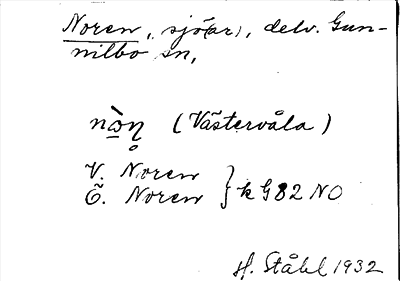 Noren, sjö(ar), delv. Gun-
nilbo sn,
(Västervåla)
V. Noren
Ö. Noren } k G82 NO
H. Ståhl 1932